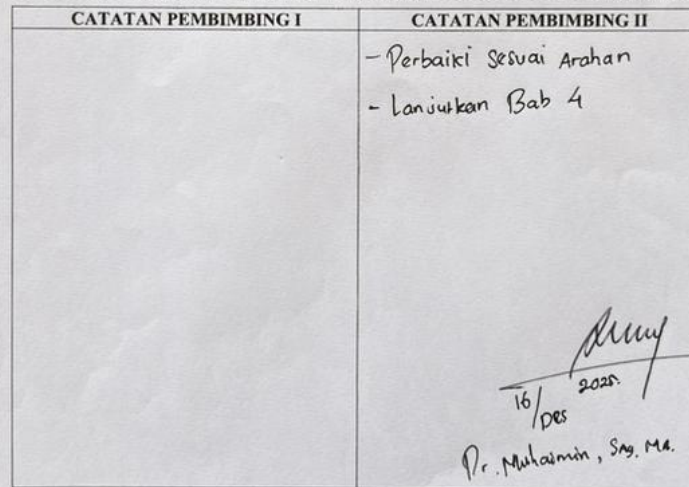 CATATAN PEMBIMBING I
CATATAN PEMBIMBING II
- Perbaiki Sesuai Arahan
- Lanjutkan Bab 4
16/Des 2025.
Dr. Muhaimin, SAg. MA.